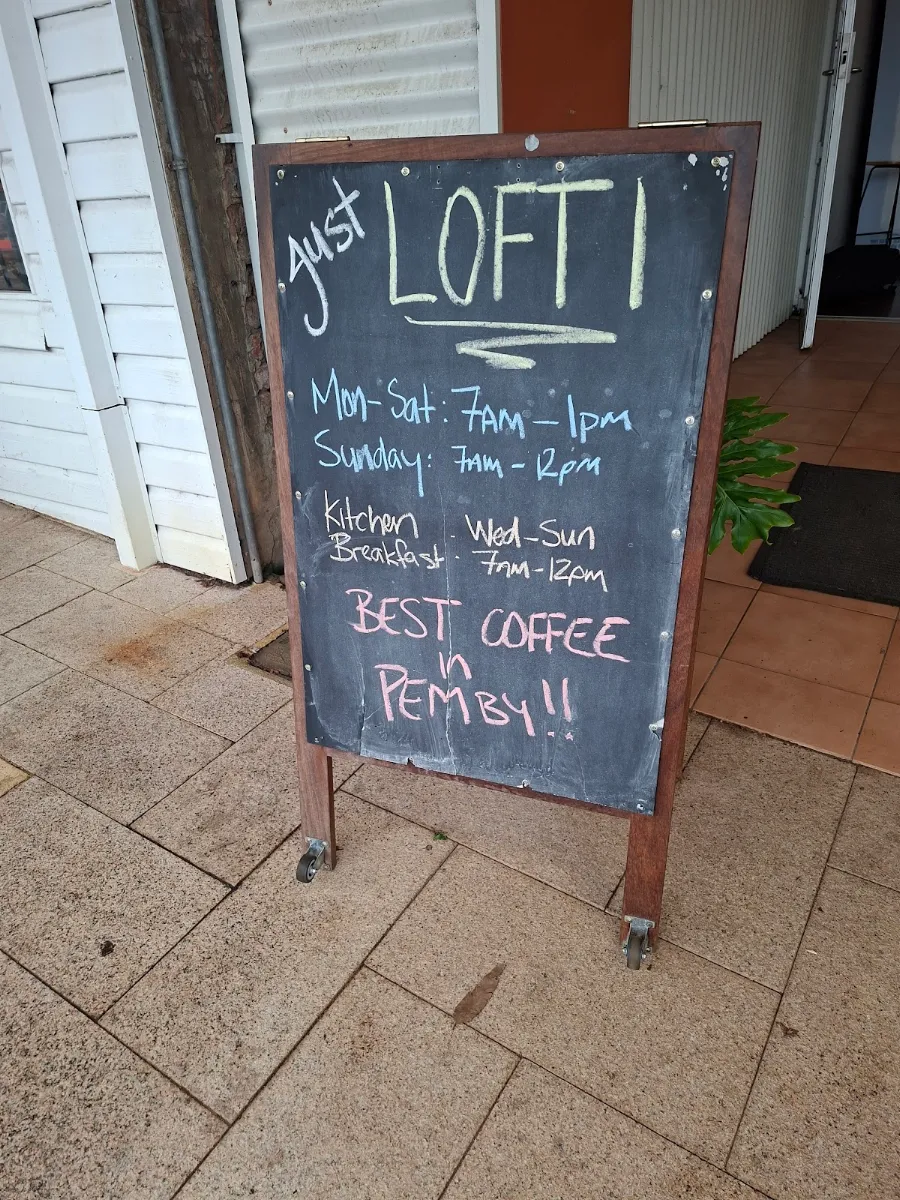 just LOFTI
Mon-Sat: 7AM-1pm
Sunday: 7AM-12pm
Kitchen - Wed-Sun
Breakfast - 7am-12pm
BEST COFFEE
in
PEMBY!!